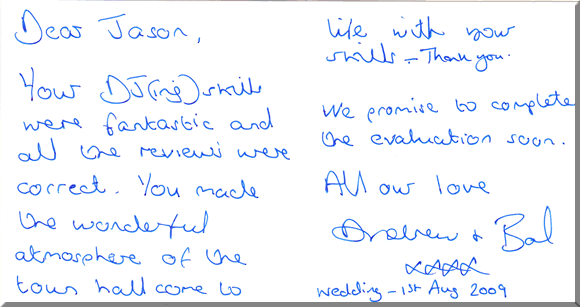 Dear Jason,
Your DJ(ing) skills
were fantastic and
all the reviews were
correct. You made
the wonderful
atmosphere of the
town hall come to
life with your
skills - Thank you.
We promise to complete
the evaluation soon.
All our love
Andrew + Bal
xxxx
Wedding - 1st Aug 2009